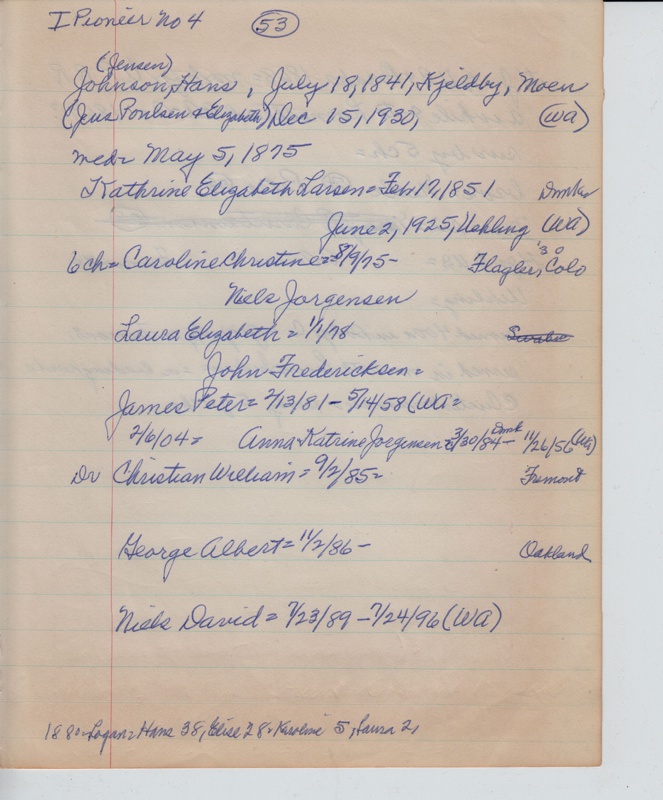 I Pioneer No 4 53
(Jensen)
Johnson, Hans, July 18, 1841, Kjeldby, Moen
(Jens Poulsen & Elizabeth) Dec 15, 1930, (WA)
med= May 5, 1875
Kathrine Elizabeth Larsen = Feb 17, 1851 Dmk
June 2, 1925, Uehling (WA)
'30
6 ch = Caroline Christine = 8/9/75 - Flagler, Colo
Niels Jorgensen
Laura Elizabeth = 1/1/78
John Fredericksen =
James Peter = 2/13/81 - 5/14/58 (WA =
Dmk
2/6/04 = Anna Katrine Jorgensen = 3/30/84 - 11/26/56 (WA)
Dr Christian William = 9/2/85 = Fremont
George Albert = 11/2/86 - Oakland
Niels David = 7/23/89 - 7/24/96 (WA)
1880 = Logan = Hans 38, Elise 28 = Karoline 5, Laura 2,